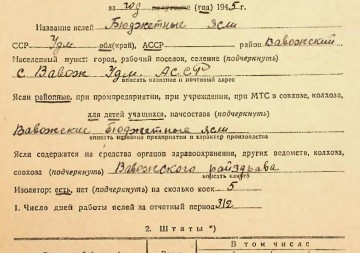 за год полугодие (год) 1945г.
Название яслей Бюджетные ясли
ССР Удм обл(край), АССР район Вавожский
Населенный пункт: город, рабочий поселок, селение (подчеркнуть)
с. Вавож Удм. АССР
вписать название и почтовый адрес
Ясли районные, при промпредприятии, при учреждении, при МТС в совхозе, колхозе,
для детей учащихся, начсостава (подчеркнуть)
Вавожские бюджетные ясли
вписать название предприятия и характер производства
Ясли содержатся на средства органов здравоохранения, других ведомств, колхоза,
совхоза (подчеркнуть) Вавожского райздрава
вписать какого
Изолятор: есть, нет (подчеркнуть) на сколько коек 5
1. Число дней работы яслей за отчетный период 312
2. Штаты *)
В том числе